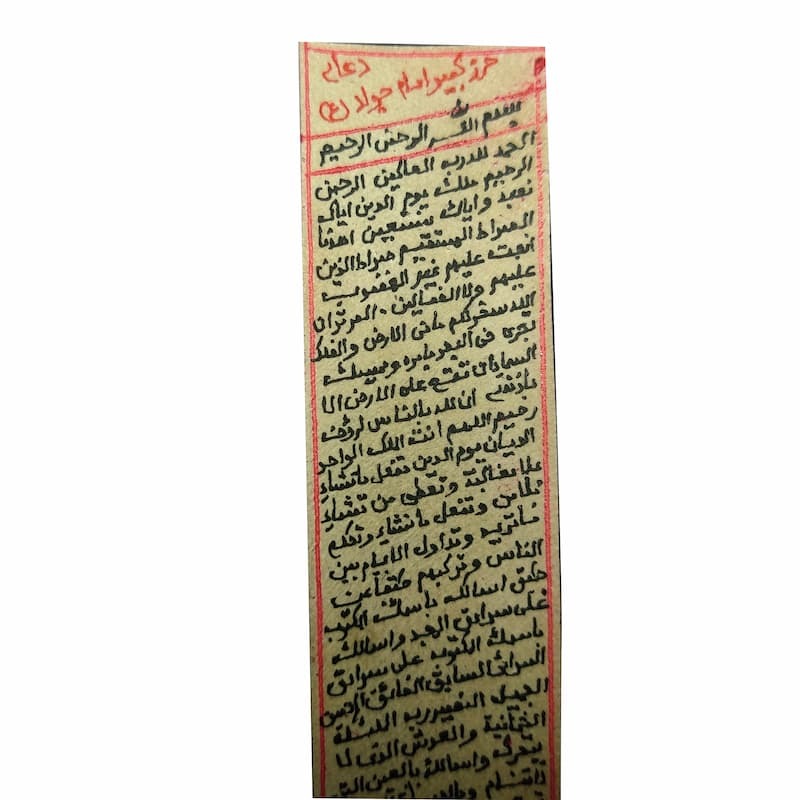 حرز كبير امام جواد (ع) دعاى
بسم الله الرحمن الرحيم
الحمد لله رب العالمين الرحمن
الرحيم ملك يوم الدين اياك
نعبد واياك نستعين اهدنا
الصراط المستقيم صراط الذين
انعمت عليهم غير المغضوب
عليهم ولا الضالين . الم تر ان
الله سخر لكم ما فى الارض والفلك
تجرى فى البحر بامره ويمسك
السماء ان تقع على الارض الا
باذنه ان الله بالناس لرؤف
رحيم اللهم انت الملك الواحد
الديان يوم الدين تفعل ما تشاء
بلا مغالبة وتعطى من تشاء
بلا من وتفعل ما تشاء وتحكم
ما تريد وتداول الايام بين
الناس وتركبهم طبقا عن
طبق اسالك باسمك المكتوب
على سرادق المجد واسالك
باسمك المكتوب على سرادق
السرائر السابق الفائق الحسن
الجميل النضير رب الملئكة
الثمانية والعرش الذى لا
يتحرك واسالك بالعين التى
لا تنام